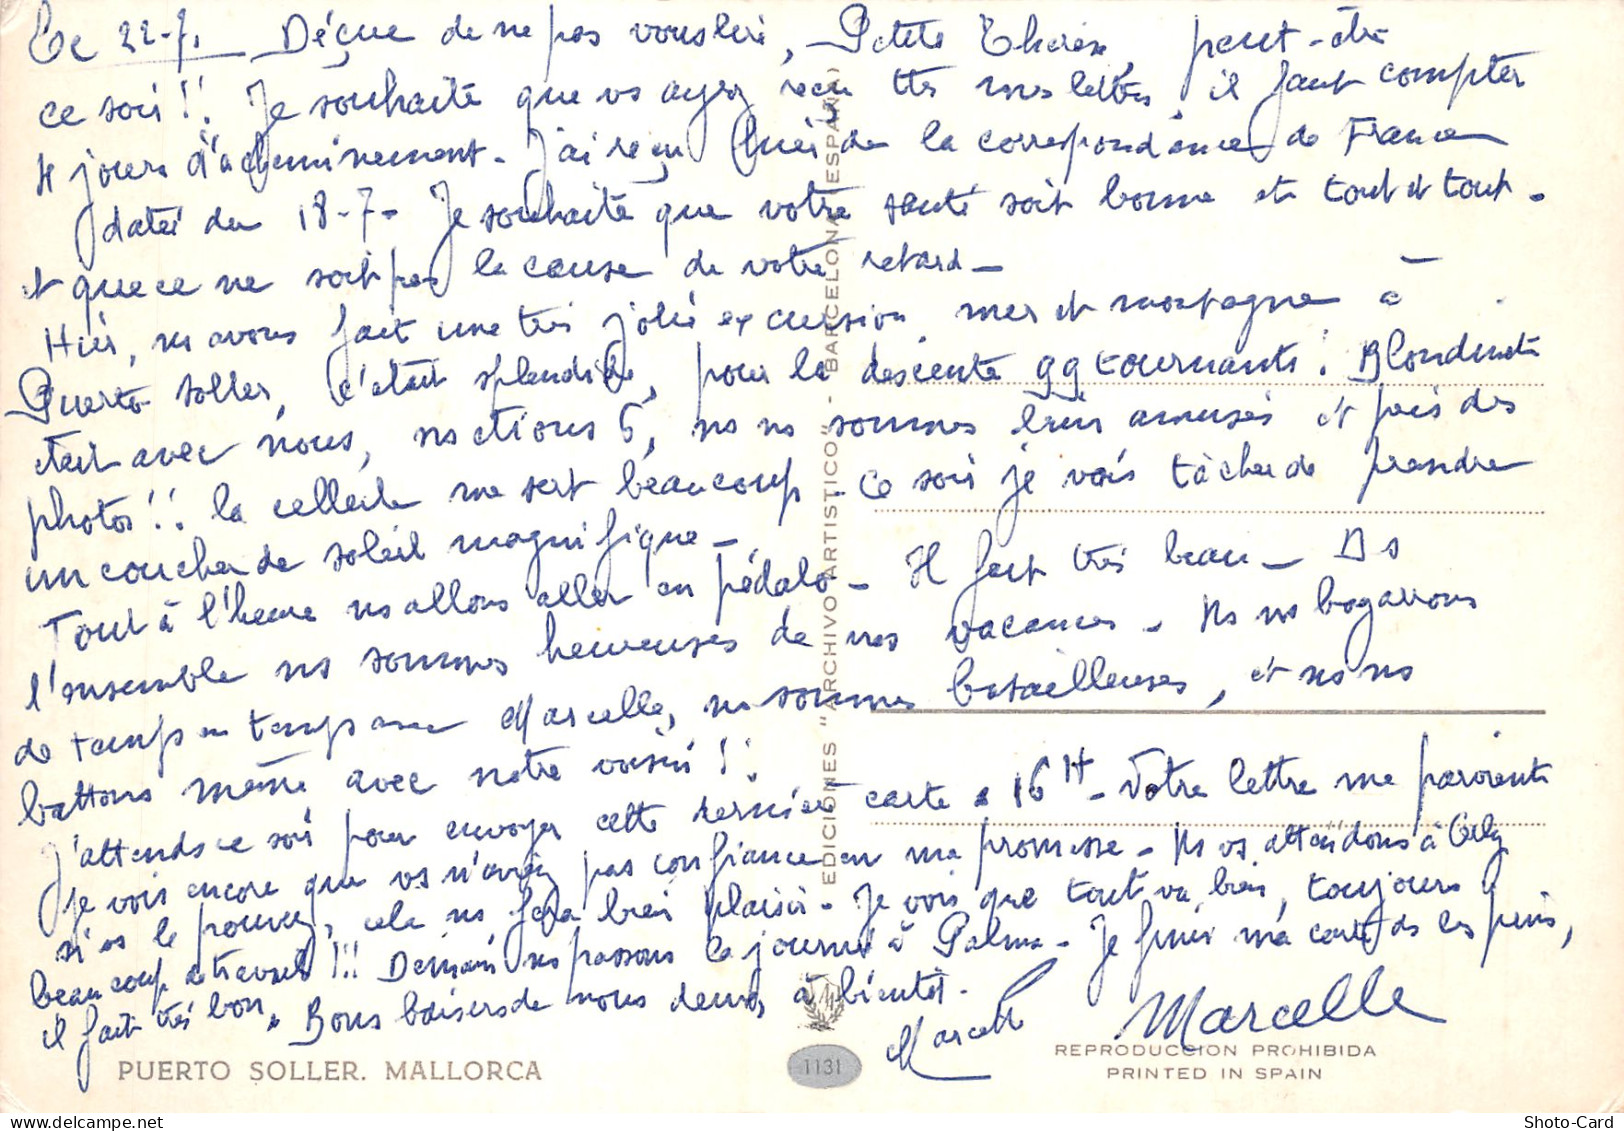 Le 22-7. Déçue de ne pas vous lire, Petite Thérèse, peut-être
ce soir !! Je souhaite que vs ayez reçu ttes mes lettres, il faut compter
4 jours d'acheminement - J'ai reçu hier de la correspondance de France
datée du 18-7 - Je souhaite que votre santé soit bonne et tout et tout -
et que ce ne soit pas la cause de votre retard -
Hier, ns avons fait une très jolie excursion mer et montagne à
Puerto Soller, c'était splendide, pour la descente 99 tournants ! Blondinette
était avec nous, ns étions 6, ns ns sommes bien amusés et pris des
photos !! la me sert beaucoup - Ce soir je vais tâcher de prendre
un coucher de soleil magnifique -
Tout à l'heure ns allons aller en pédalo - Il fait très beau - Ds
l'ensemble ns sommes heureuses de nos vacances - Ns ns bagarrons
de temps en temps avec Marcelle, ns sommes batailleuses, et ns ns
battons même avec notre voisin !!
J'attends ce soir pour envoyer cette dernière carte à 16H - Votre lettre me parvient
je vois encore que vs n'aviez pas confiance en ma promesse - Ns vs attendons à Orly
si vs le pouvez, cela ns fera bien plaisir - Je vois que tout va bien, toujours
beaucoup de travail !!! Demain ns passons la journée à Palma - Je finis ma carte ds les pins,
il fait très bon. Bons baisers de nous deux, à bientôt.
Marcelle
Marcelle
EDICIONES "ARCHIVO ARTISTICO" - BARCELONA (ESPAÑA)
PUERTO SOLLER. MALLORCA
1131
REPRODUCCION PROHIBIDA
PRINTED IN SPAIN
Shoto-Card